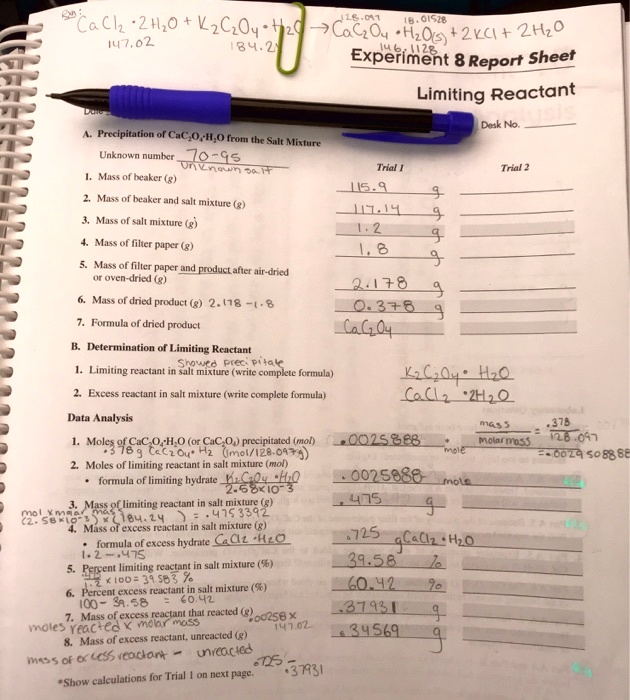 CaCl2 · 2H2O + K2C2O4 · H2O → CaC2O4 · H2O(s) + 2KCl + 2H2O
128.097 18.01528
147.02 184.2 146.1128
Experiment 8 Report Sheet
Limiting Reactant
Desk No.
A. Precipitation of CaC2O4·H2O from the Salt Mixture
Unknown number 70-95
unknown salt
Trial 1 Trial 2
1. Mass of beaker (g) 115.9 g
2. Mass of beaker and salt mixture (g) 117.14 g
3. Mass of salt mixture (g) 1.2 g
4. Mass of filter paper (g) 1.8 g
5. Mass of filter paper and product after air-dried
or oven-dried (g) 2.178 g
6. Mass of dried product (g) 2.178 - 1.8 0.378 g
7. Formula of dried product CaC2O4
B. Determination of Limiting Reactant
Showed precipitate
1. Limiting reactant in salt mixture (write complete formula) K2C2O4 · H2O
2. Excess reactant in salt mixture (write complete formula) CaCl2 · 2H2O
Data Analysis
mass / molar mass = .378 / 128.097
1. Moles of CaC2O4·H2O (or CaC2O4) precipitated (mol) .0025888 mole
.378g CaC2O4 · H2 (1mol/128.097g) = .0029508888
2. Moles of limiting reactant in salt mixture (mol) .0025888 mole
• formula of limiting hydrate K2C2O4 · H2O
2.58x10-3
3. Mass of limiting reactant in salt mixture (g) .475 g
mol x molar mass
(2.58x10-3) x (184.24 ) = .4753392
4. Mass of excess reactant in salt mixture (g)
• formula of excess hydrate CaCl2 · H2O .725 g CaCl2 · H2O
1.2 - .475
5. Percent limiting reactant in salt mixture (%) 39.58 %
x 100 = 39.583 %
6. Percent excess reactant in salt mixture (%) 60.42 %
100 - 39.58 = 60.42
7. Mass of excess reactant that reacted (g) .00258 x 147.02 .37931 g
moles reacted x molar mass
8. Mass of excess reactant, unreacted (g) .34569 g
mass of excess reactant - unreacted .725 - .37931
*Show calculations for Trial 1 on next page.